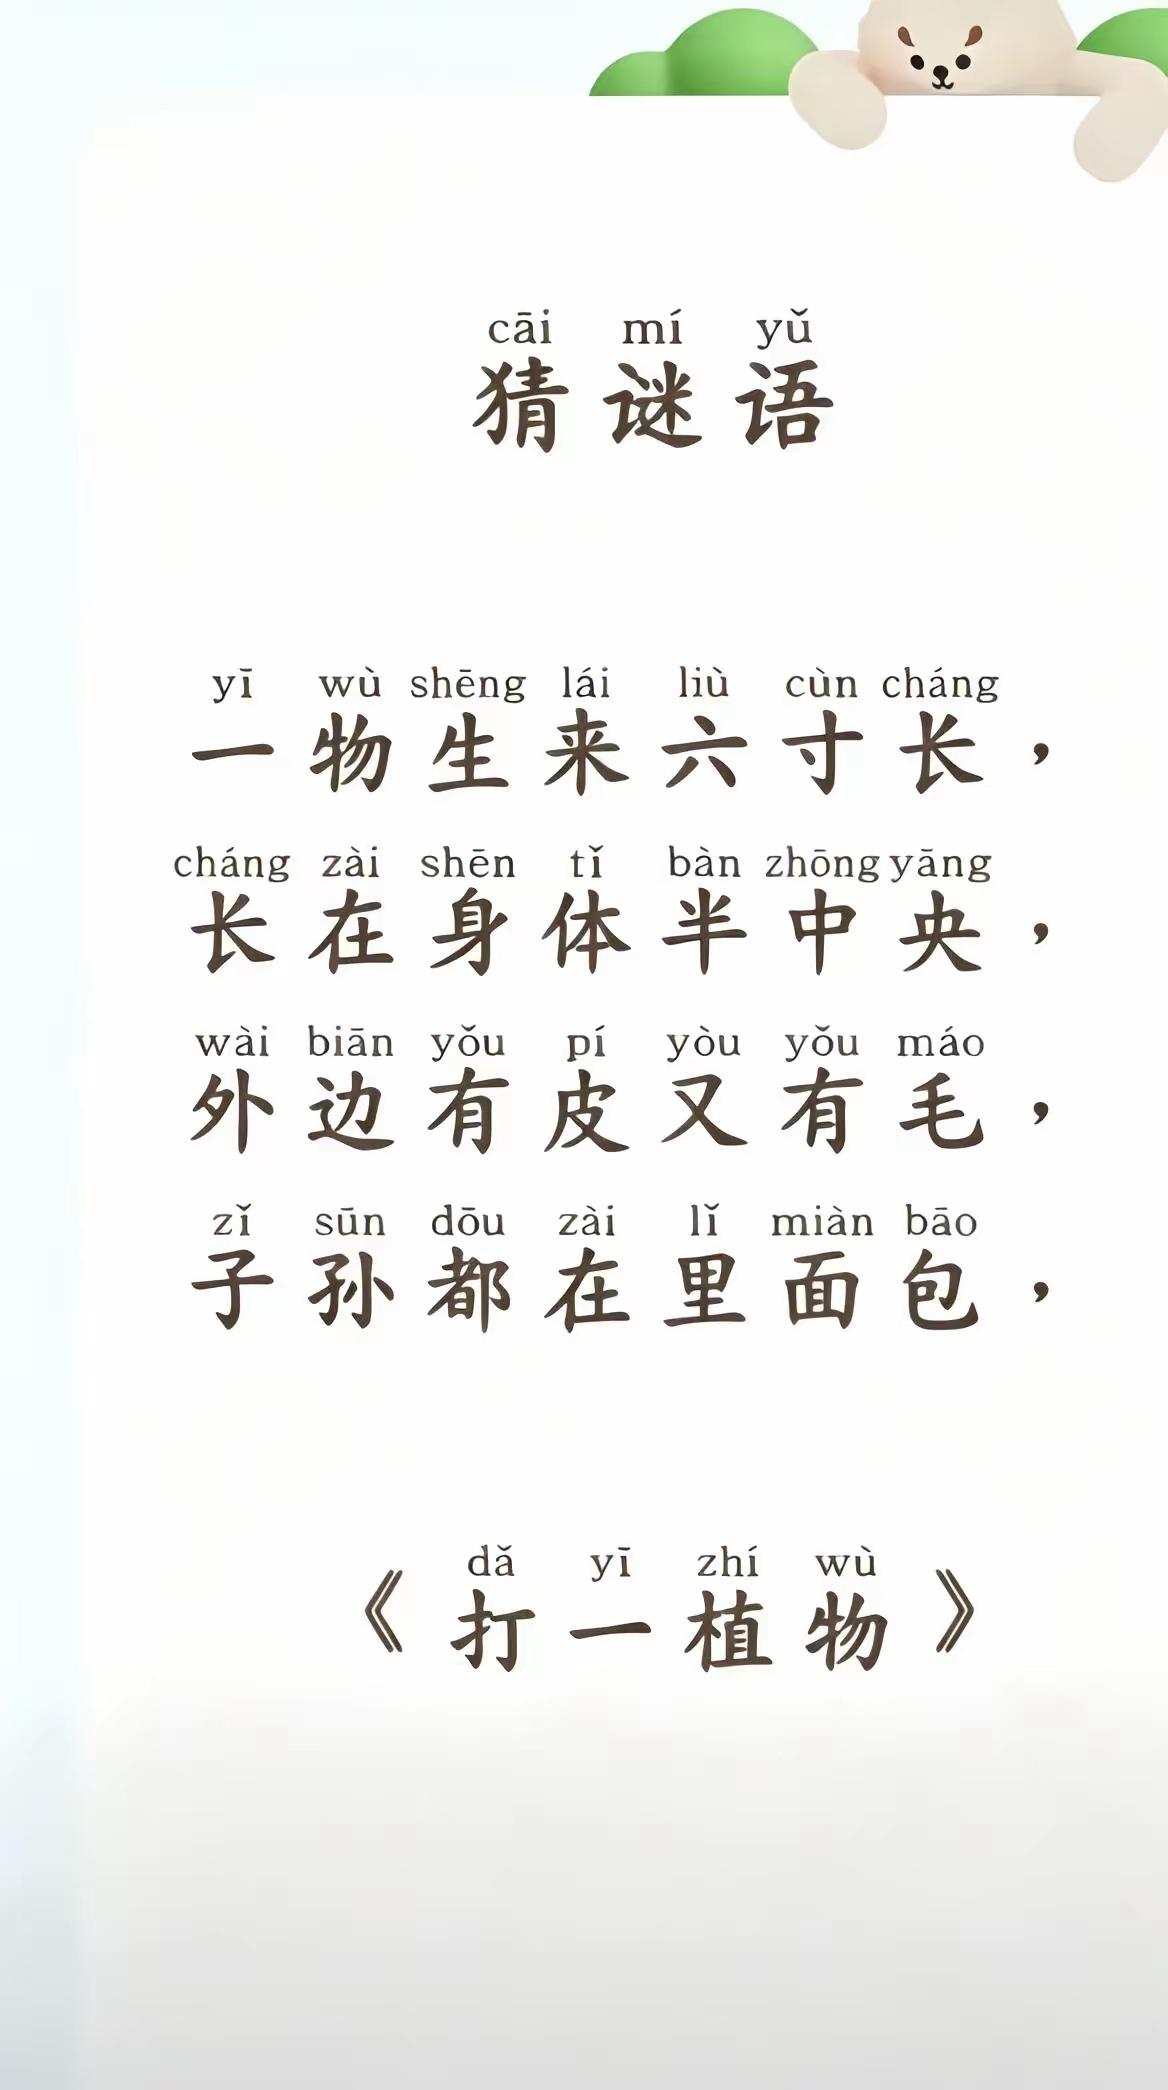 cāi mí yǔ
猜谜语
yī wù shēng lái liù cùn cháng
一物生来六寸长，
cháng zài shēn tǐ bàn zhōng yāng
长在身体半中央，
wài biān yǒu pí yòu yǒu máo
外边有皮又有毛，
zǐ sūn dōu zài lǐ miàn bāo
子孙都在里面包，
dǎ yī zhí wù
《打一植物》